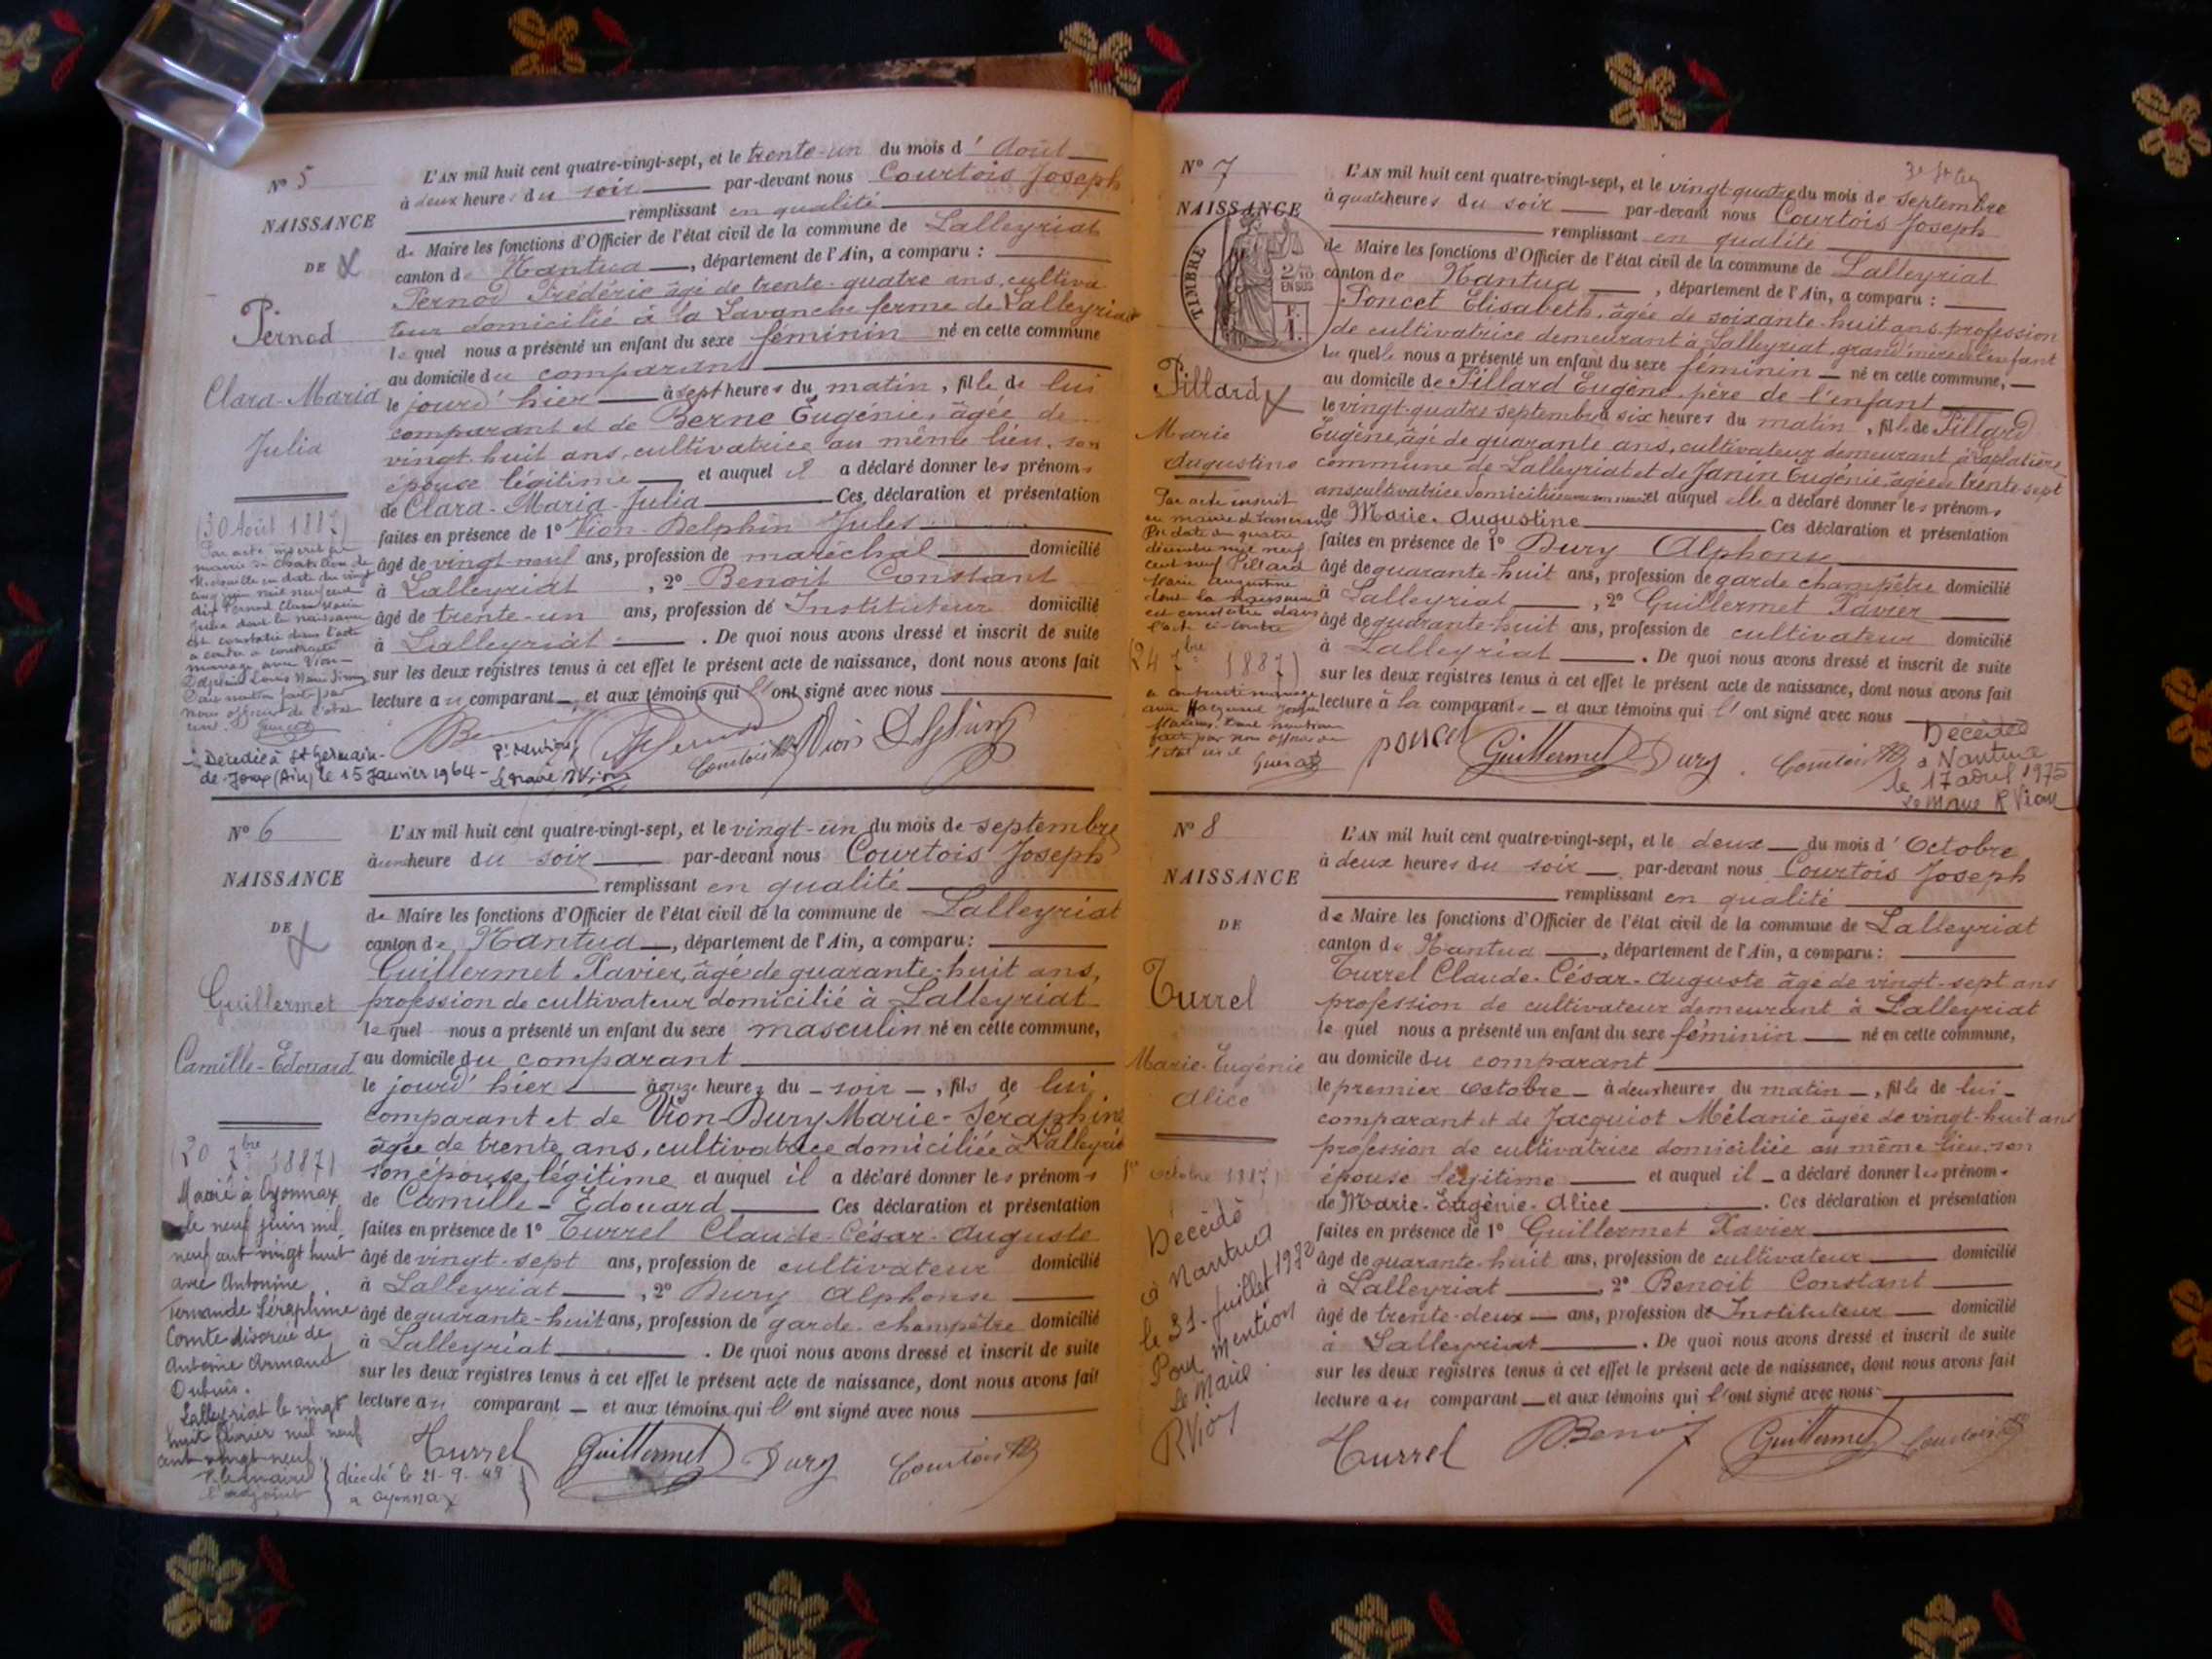 N° 5
NAISSANCE
DE
Pernod
Clara-Maria
Julia
L'AN mil huit cent quatre-vingt-sept, et le trente-un du mois d'Août
à deux heures du soir par-devant nous Courtois Joseph
remplissant en qualité
de Maire les fonctions d'Officier de l'état civil de la commune de Lalleyriat
canton de Nantua, département de l'Ain, a comparu :
Pernod Frédéric âgé de trente-quatre ans, cultiva
teur domicilié à la Lavanche ferme de Lalleyriat
lequel nous a présenté un enfant du sexe féminin né en cette commune
au domicile du comparant
le jourd'hier à sept heures du matin, fille de lui
comparant et de Berne Eugénie, âgée de
vingt-huit ans, cultivatrice au même lieu, son
épouse légitime et auquel il a déclaré donner les prénoms
de Clara-Maria-Julia Ces déclaration et présentation
faites en présence de 1° Vion-Delphin Jules
âgé de vingt-neuf ans, profession de maréchal domicilié
à Lalleyriat, 2° Benoit Constant
âgé de trente-un ans, profession de Instituteur domicilié
à Lalleyriat. De quoi nous avons dressé et inscrit de suite
sur les deux registres tenus à cet effet le présent acte de naissance, dont nous avons fait
lecture au comparant et aux témoins qui l'ont signé avec nous
(30 Août 1887)
Par acte inscrit en
mairie de Chatillon de
Michaille en date du vingt
cinq juin mil neuf cent
dix Pernod Clara Maria
Julia dont la naissance
est constatée dans l'acte
ci contre a contracté
mariage avec Vion-
Delphin Louis
Dont mention faite par
nous officier de l'état
civil.
Décédée à St Germain-
de-Joux (Ain) le 15 Janvier 1964-
Pr mention
Le maire RVion
Courtois Vion Delphin
N° 6
NAISSANCE
DE
Guillermet
Camille-Edouard
L'AN mil huit cent quatre-vingt-sept, et le vingt-un du mois de septembre
à une heure du soir par-devant nous Courtois Joseph
remplissant en qualité
de Maire les fonctions d'Officier de l'état civil de la commune de Lalleyriat
canton de Nantua, département de l'Ain, a comparu :
Guillermet Xavier, âgé de quarante-huit ans,
profession de cultivateur domicilié à Lalleyriat
lequel nous a présenté un enfant du sexe masculin né en cette commune,
au domicile du comparant
le jourd'hier à onze heures du soir, fils de lui
comparant et de Vion-Dury Marie-Séraphine
âgée de trente ans, cultivatrice domiciliée à Lalleyriat
son épouse légitime et auquel il a déclaré donner les prénoms
de Camille-Edouard Ces déclaration et présentation
faites en présence de 1° Turrel Claude-César-Auguste
âgé de vingt-sept ans, profession de cultivateur domicilié
à Lalleyriat, 2° Dury Alphonse
âgé de quarante-huit ans, profession de garde-champêtre domicilié
à Lalleyriat. De quoi nous avons dressé et inscrit de suite
sur les deux registres tenus à cet effet le présent acte de naissance, dont nous avons fait
lecture au comparant et aux témoins qui l'ont signé avec nous
(20 7bre 1887)
Marié à Oyonnax
le neuf juin mil
neuf cent vingt huit
avec Antonine
Fernande Séraphine
Comte divorcée de
Antoine Armand
Dubuis.
Lalleyriat le vingt
huit février mil neuf
cent vingt neuf.
P. le maire
l'adjoint
décédé le 21-9-49
à Oyonnax
Turrel Guillermet Dury Courtois
N° 7
NAISSANCE
TIMBRE
2/10
EN SUS
Pillard
Marie
Augustine
L'AN mil huit cent quatre-vingt-sept, et le vingt-quatre du mois de Septembre
à quatre heures du soir par-devant nous Courtois Joseph
remplissant en qualité
de Maire les fonctions d'Officier de l'état civil de la commune de Lalleyriat
canton de Nantua, département de l'Ain, a comparu :
Poncet Elisabeth, âgée de soixante-huit ans, profession
de cultivatrice demeurant à Lalleyriat, grand'mère de l'enfant
laquelle nous a présenté un enfant du sexe féminin né en cette commune,
au domicile de Pillard Eugène, père de l'enfant
le vingt-quatre septembre à six heures du matin, fille de Pillard
Eugène, âgé de quarante ans, cultivateur demeurant à
commune de Lalleyriat et de Janin Eugénie, âgée de trente-sept
ans, cultivatrice domiciliée et auquel elle a déclaré donner les prénoms
de Marie-Augustine Ces déclaration et présentation
faites en présence de 1° Dury Alphonse
âgé de quarante-huit ans, profession de garde champêtre domicilié
à Lalleyriat, 2° Guillermet Xavier
âgé de quarante-huit ans, profession de cultivateur domicilié
à Lalleyriat. De quoi nous avons dressé et inscrit de suite
sur les deux registres tenus à cet effet le présent acte de naissance, dont nous avons fait
lecture à la comparante et aux témoins qui l'ont signé avec nous
Par acte inscrit
en mairie de
en date du quatre
décembre mil neuf
cent neuf Pillard
Marie Augustine
dont la naissance
est constatée dans
l'acte ci-contre
(24 7bre 1887)
a contracté mariage
avec
dont mention
faite par nous officier de
l'état civil
poncet Guillermet Dury Courtois
Décédée
à Nantua
le 17 avril 1975
Le Maire R Vion
N° 8
NAISSANCE
DE
Turrel
Marie-Eugénie
Alice
L'AN mil huit cent quatre-vingt-sept, et le deux du mois d'Octobre
à deux heures du soir par-devant nous Courtois Joseph
remplissant en qualité
de Maire les fonctions d'Officier de l'état civil de la commune de Lalleyriat
canton de Nantua, département de l'Ain, a comparu :
Turrel Claude-César-Auguste âgé de vingt-sept ans
profession de cultivateur demeurant à Lalleyriat
lequel nous a présenté un enfant du sexe féminin né en cette commune,
au domicile du comparant
le premier octobre à deux heures du matin, fille de lui-
comparant et de Jacquiot Mélanie âgée de vingt-huit ans
profession de cultivatrice domiciliée au même lieu, son
épouse légitime et auquel il a déclaré donner les prénoms
de Marie-Eugénie-Alice. Ces déclaration et présentation
faites en présence de 1° Guillermet Xavier
âgé de quarante-huit ans, profession de cultivateur domicilié
à Lalleyriat, 2° Benoit Constant
âgé de trente-deux ans, profession de Instituteur domicilié
à Lalleyriat. De quoi nous avons dressé et inscrit de suite
sur les deux registres tenus à cet effet le présent acte de naissance, dont nous avons fait
lecture au comparant et aux témoins qui l'ont signé avec nous
1er octobre 1887)
Décédé
à Nantua
le 31 juillet
Pour mention
Le Maire
RVion
Turrel Benoit Guillermet Courtois